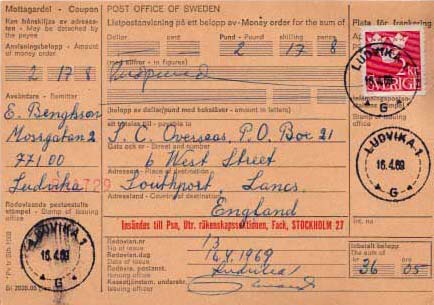 Mottagardel - Coupon
Kan bortklippas av adressaten - May be detached by the payee
Anvisningsbelopp - Amount of money order
2 17 8
Avsändare - Remitter
E. Benghson
Mossgatan 2
771 00
Ludvika
1729
Redovisande postanstalts stämpel - Stamp of issuing office
LUDVIKA 1
16.4.69
G
POST OFFICE OF SWEDEN
Utrikespostanvisning på ett belopp av - Money order for the sum of
Dollar
cent
Pund - Pound
shilling
pence
2 17 8
(med siffror - in figures)
(belopp av dollar/pund med bokstäver - amount in letters)
att betalas till - payable to
S. C. Overseas, P.O. Box 21
Gata och nr - Street and number
6 West Street
Adressort - Place of destination
Southport, Lancs.
Adressland - Country of destination
England
Insändes till Psn, Utr. räkenskapssektionen, Fack, STOCKHOLM 27
Redovisn.nr
No of issue
13
Redovisn.dag
Date of issue
16/4 1969
Redovis. postanst.
Issuing office
Ludvika 1
Kassatjänstem. underskr.
Plats för frankering
LUDVIKA 1
16.4.69
G
2 kr
SVERIGE
Stamp of issuing office
LUDVIKA 1
16.4.69
G
Int. nr
Inbetalt belopp
The sum of
kr
36 05